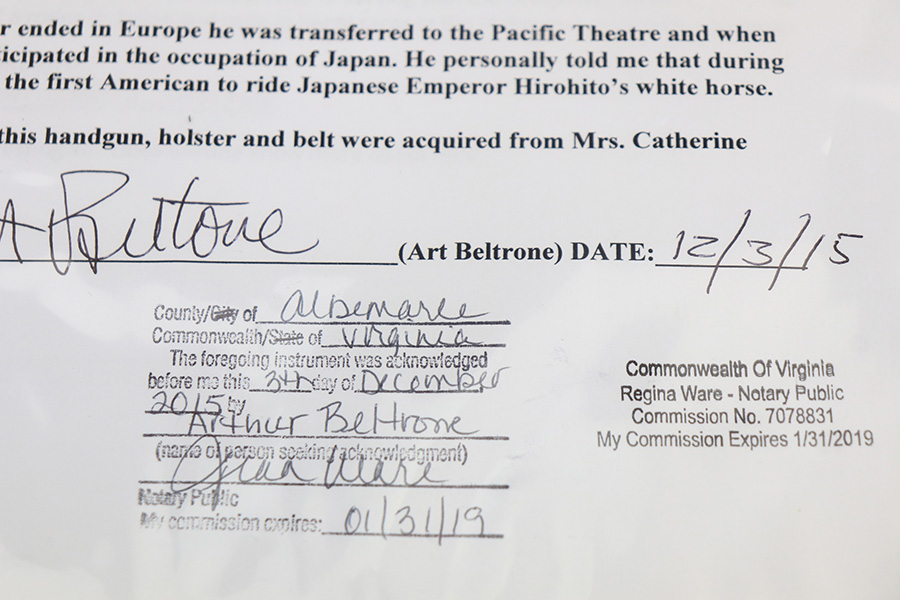 r ended in Europe he was transferred to the Pacific Theatre and when
ticipated in the occupation of Japan. He personally told me that during
the first American to ride Japanese Emperor Hirohito's white horse.
this handgun, holster and belt were acquired from Mrs. Catherine
A Beltrone (Art Beltrone) DATE: 12/3/15
County/City of Albemarle
Commonwealth/State of Virginia
The foregoing instrument was acknowledged
before me this 3th day of December
2015 by
Arthur Beltrone
(name of person seeking acknowledgment)
Ware
Notary Public
My commission expires: 01/31/19
Commonwealth Of Virginia
Regina Ware - Notary Public
Commission No. 7078831
My Commission Expires 1/31/2019